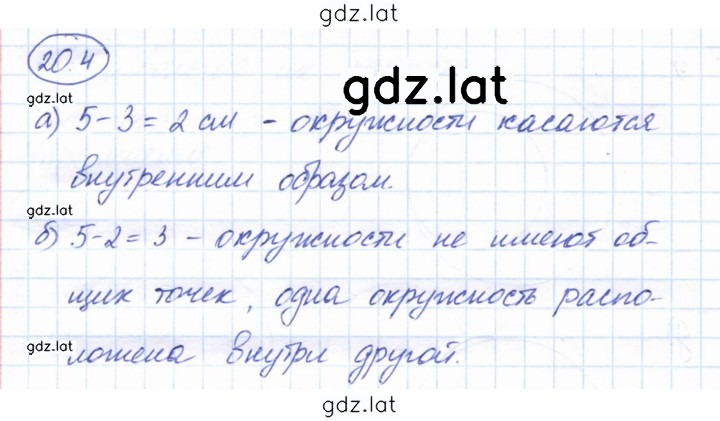 gdz.lat
20.4
gdz.lat
gdz.lat
а) 5 - 3 = 2 см - окружности касаются
внутренним образом.
gdz.lat
б) 5 - 2 = 3 - окружности не имеют об-
щих точек, одна окружность распо-
gdz.lat
ложена внутри другой.
gdz.lat